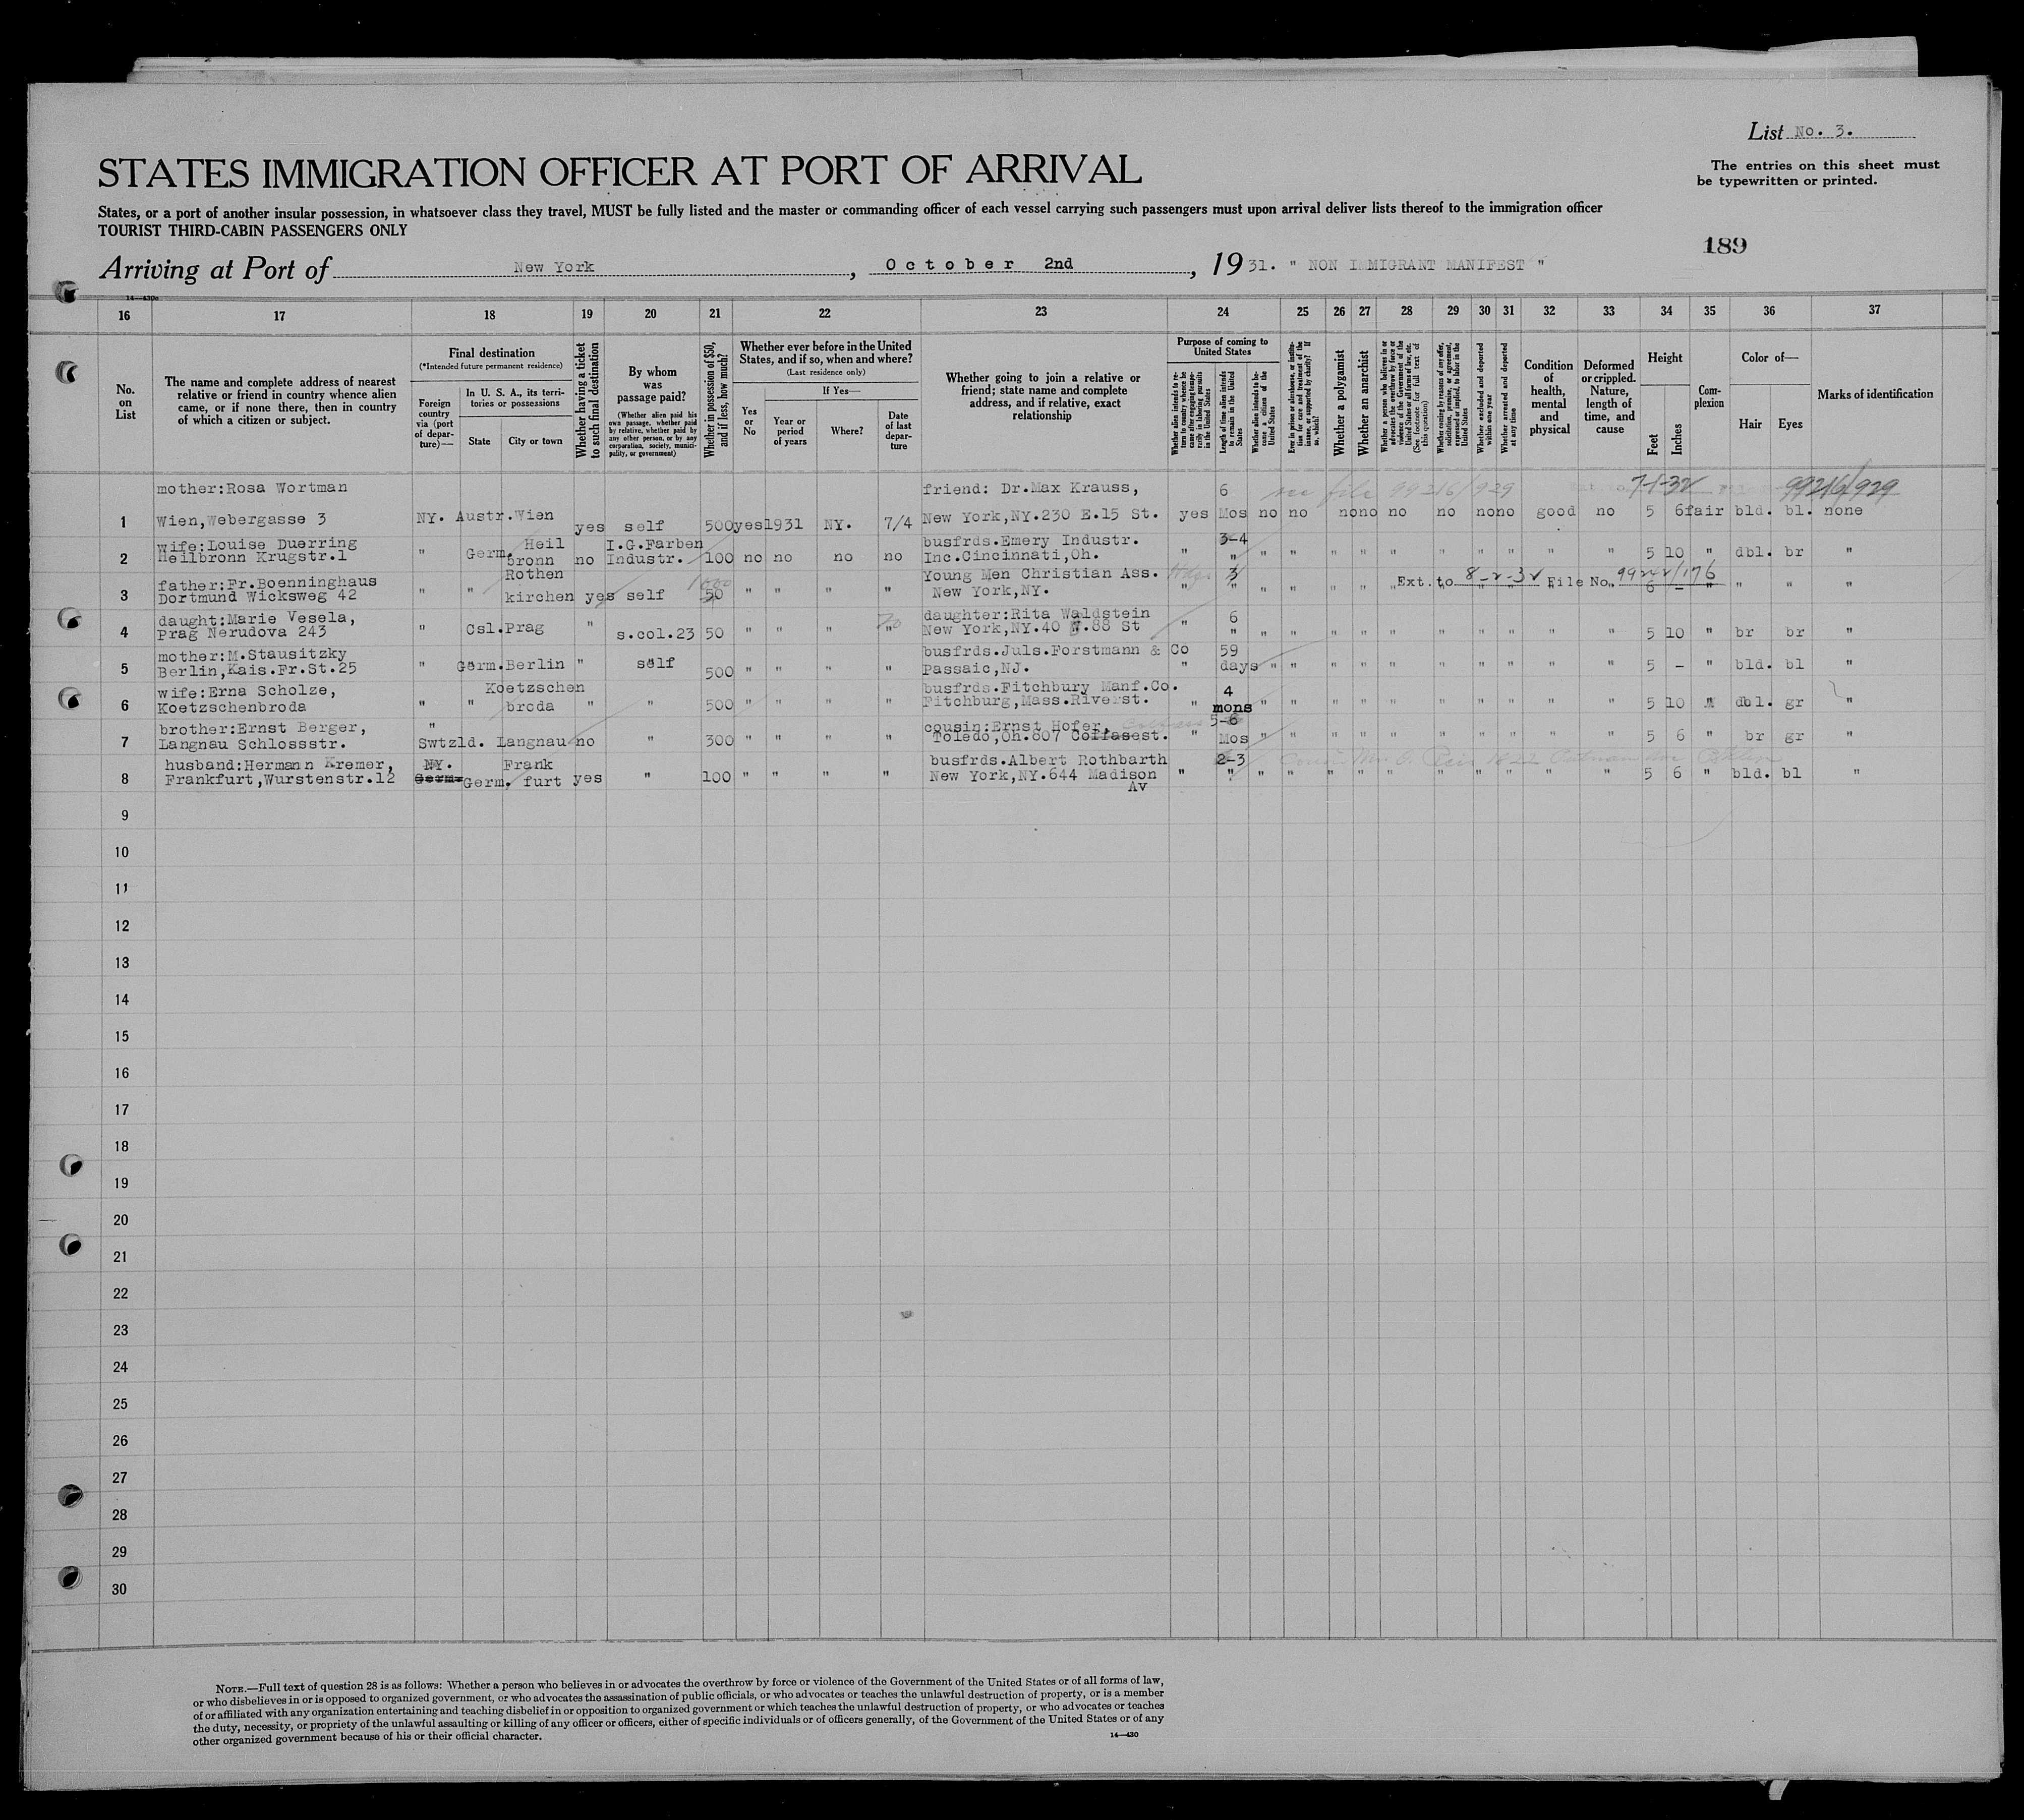 List No. 3.
STATES IMMIGRATION OFFICER AT PORT OF ARRIVAL
The entries on this sheet must
be typewritten or printed.
States, or a port of another insular possession, in whatsoever class they travel, MUST be fully listed and the master or commanding officer of each vessel carrying such passengers must upon arrival deliver lists thereof to the immigration officer
TOURIST THIRD-CABIN PASSENGERS ONLY
189
Arriving at Port of New York, October 2nd, 1931. " NON IMMIGRANT MANIFEST "
14—430c
16 17 18 19 20 21 22 23 24 25 26 27 28 29 30 31 32 33 34 35 36 37
No. on List
The name and complete address of nearest relative or friend in country whence alien came, or if none there, then in country of which a citizen or subject.
Final destination
(*Intended future permanent residence)
Foreign country via (port of departure)—
In U. S. A., its territories or possessions
State
City or town
Whether having a ticket to such final destination
By whom was passage paid?
(Whether alien paid his own passage, whether paid by relative, whether paid by any other person, or by any corporation, society, municipality, or government)
Whether in possession of $50, and if less, how much?
Whether ever before in the United States, and if so, when and where?
(Last residence only)
Yes or No
If Yes—
Year or period of years
Where?
Date of last departure
Whether going to join a relative or friend; state name and complete address, and if relative, exact relationship
Purpose of coming to United States
Whether alien intends to return to country whence he came after engaging temporarily in laboring pursuits in the United States
Length of time alien intends to remain in the United States
Whether alien intends to become a citizen of the United States
Ever in prison or almshouse, or institution for care and treatment of the insane, or supported by charity? If so, which?
Whether a polygamist
Whether an anarchist
Whether a person who believes in or advocates the overthrow by force or violence of the Government of the United States or all forms of law, etc. (See footnote for full text of this question)
Whether coming by reasons of any offer, solicitation, promise, or agreement, expressed or implied, to labor in the United States
Whether excluded and deported within one year
Whether arrested and deported at any time
Condition of health, mental and physical
Deformed or crippled. Nature, length of time, and cause
Height
Feet
Inches
Complexion
Color of—
Hair
Eyes
Marks of identification
mother:Rosa Wortman friend: Dr.Max Krauss, 6 see file 99216/929 7-1-32 99216/929
1 Wien,Webergasse 3 NY. Austr.Wien yes self 500 yes 1931 NY. 7/4 New York,NY.230 E.15 St. yes Mos no no no no no no no no good no 5 6 fair bld. bl. none
wife:Louise Duerring Heil I.G.Farben busfrds.Emery Industr. 3-4
2 Heilbronn Krugstr.1 " Germ. bronn no Industr. 100 no no no no Inc.Cincinnati,Oh. " " " " " " " " " " " " 5 10 " dbl. br "
father:Fr.Boenninghaus Rothen 1000 Young Men Christian Ass. 3 Ext. to 8-2-32 File No. 99242/176
3 Dortmund Wicksweg 42 " " kirchen yes self 50 " " " " New York,NY. " " " " " " " " " " " " 6 - " " " "
daught:Marie Vesela, daughter:Rita Waldstein 6
4 Prag Nerudova 243 " Csl.Prag " s.col.23 50 " " " " New York,NY.40 W.88 St " " " " " " " " " " " " 5 10 " br br "
mother:M.Stausitzky busfrds.Juls.Forstmann & Co 59
5 Berlin,Kais.Fr.St.25 " Germ.Berlin " self 500 " " " " Passaic,NJ. " days " " " " " " " " " " 5 - " bld. bl "
wife:Erna Scholze, Koetzschen busfrds.Fitchbury Manf.Co. 4
6 Koetzschenbroda " " broda " " 500 " " " " Fitchburg,Mass.Riverst. " mons " " " " " " " " " " 5 10 " dbl. gr "
brother:Ernst Berger, " cousin:Ernst Hofer, 5-6
7 Langnau Schlossstr. Swtzld. Langnau no " 300 " " " " Toledo,Oh.607 Coffasest. " Mos " " " " " " " " " " 5 6 " br gr "
husband:Hermann Kremer, NY. Frank busfrds.Albert Rothbarth 2-3
8 Frankfurt,Wurstenstr.12 Germ. Germ. furt yes " 100 " " " " New York,NY.644 Madison " " " " " " " " " " " " 5 6 " bld. bl "
Av
9
10
11
12
13
14
15
16
17
18
19
20
21
22
23
24
25
26
27
28
29
30
NOTE.—Full text of question 28 is as follows: Whether a person who believes in or advocates the overthrow by force or violence of the Government of the United States or of all forms of law,
or who disbelieves in or is opposed to organized government, or who advocates the assassination of public officials, or who advocates or teaches the unlawful destruction of property, or is a member
of or affiliated with any organization entertaining and teaching disbelief in or opposition to organized government or which teaches the unlawful destruction of property, or who advocates or teaches
the duty, necessity, or propriety of the unlawful assaulting or killing of any officer or officers, either of specific individuals or of officers generally, of the Government of the United States or of any
other organized government because of his or their official character.
14—430